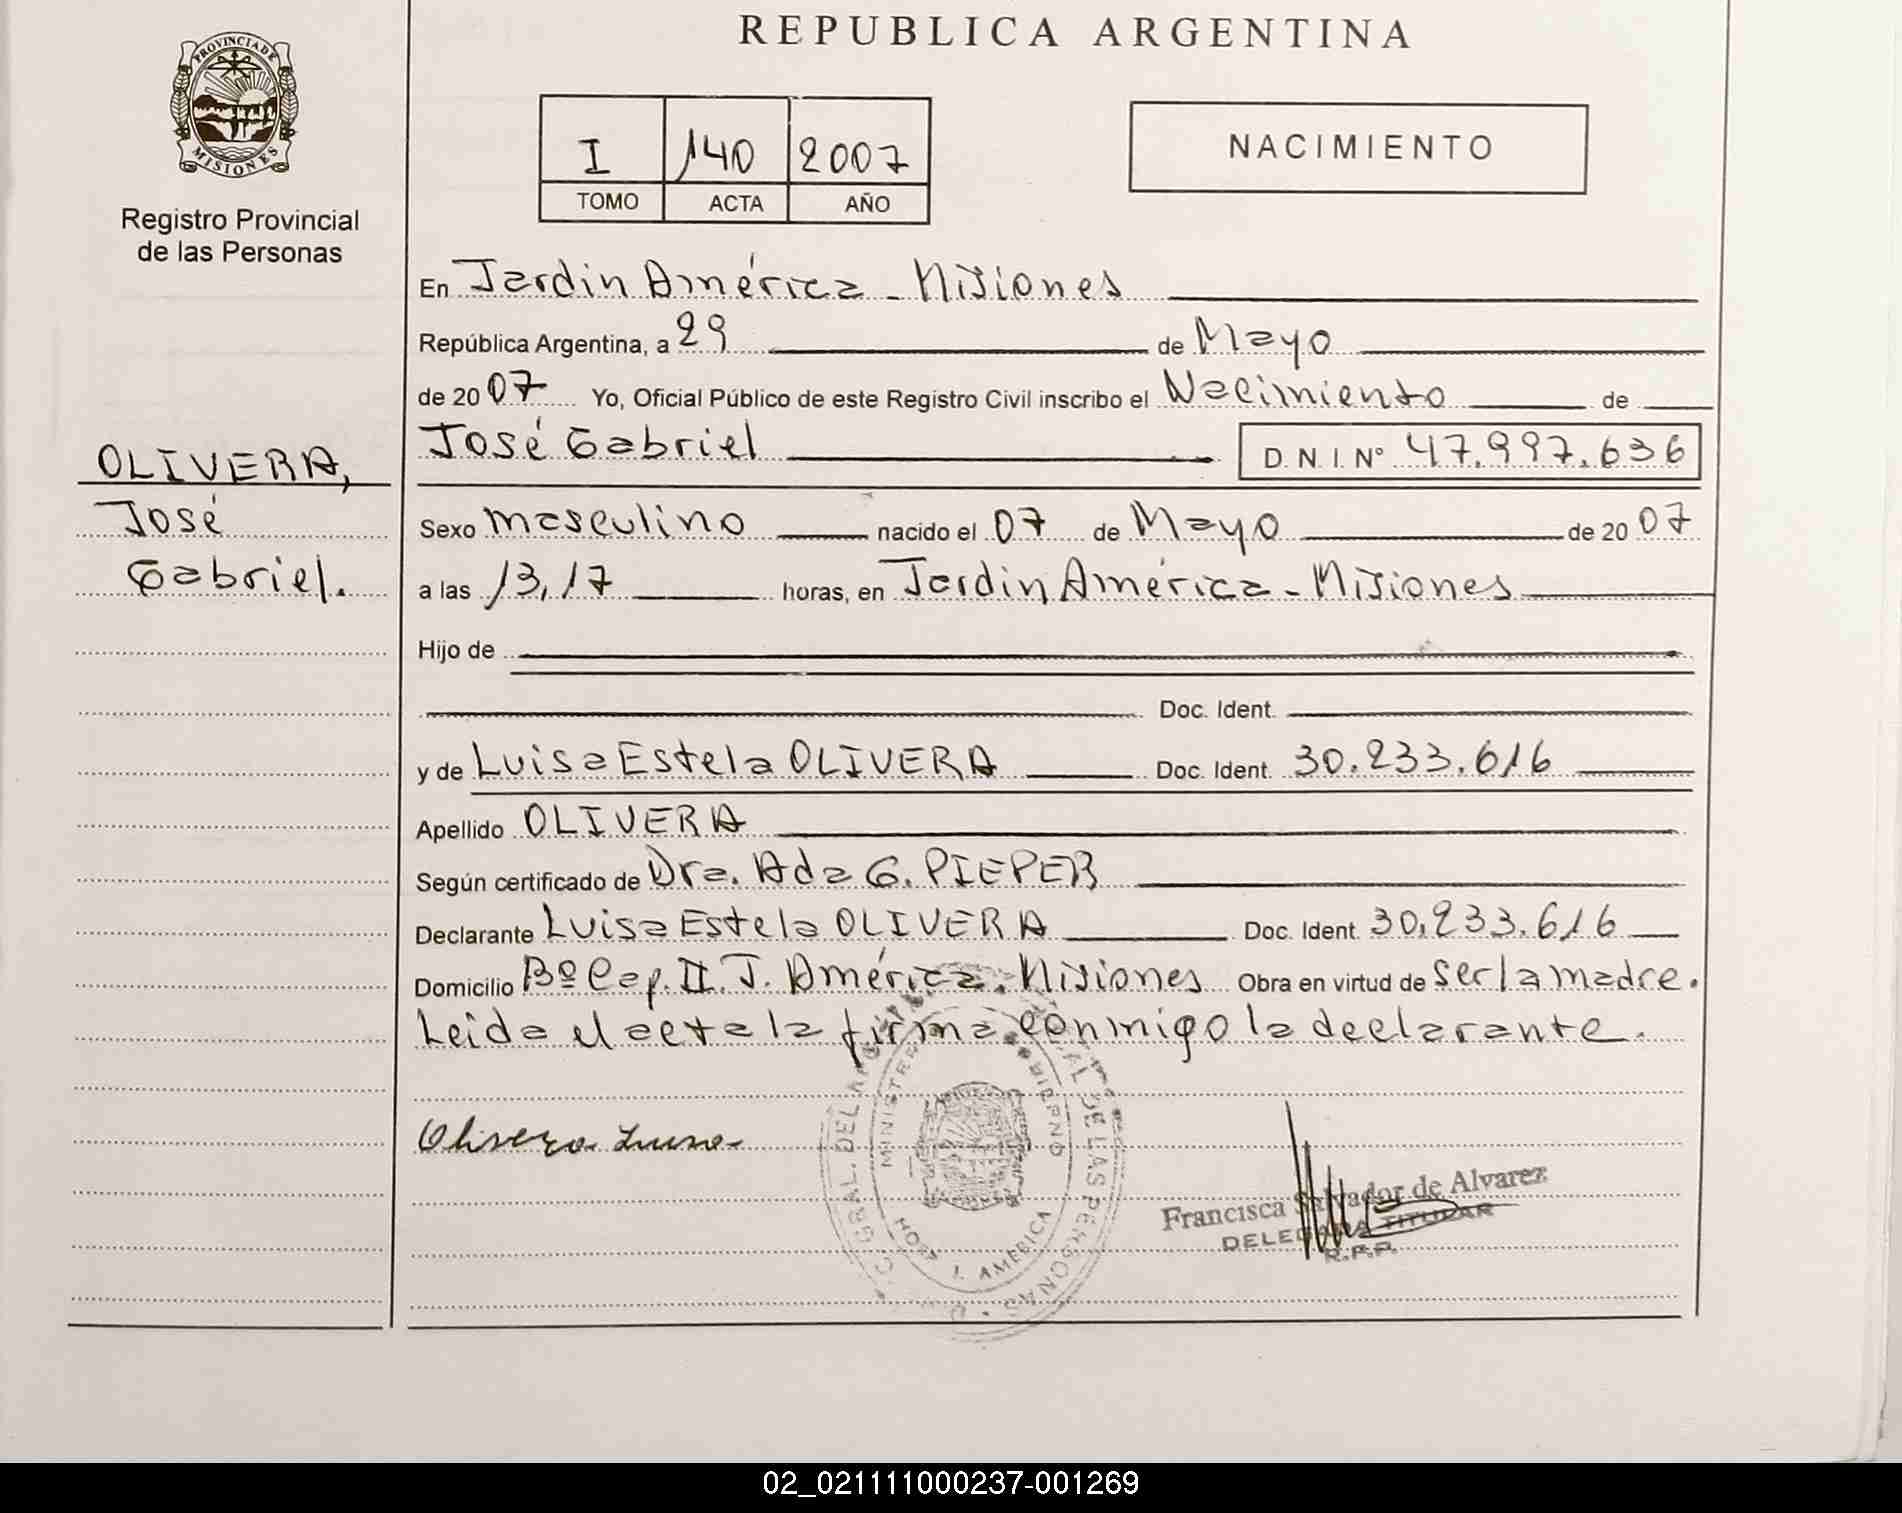 REPUBLICA ARGENTINA
PROVINCIA DE
MISIONES
Registro Provincial
de las Personas
I 140 2007
TOMO ACTA AÑO
NACIMIENTO
En Jardin América - Misiones
República Argentina, a 29 de Mayo
de 2007 Yo, Oficial Público de este Registro Civil inscribo el Nacimiento de
José Gabriel D.N.I. Nº 47.997.636
OLIVERA,
José
Gabriel.
Sexo masculino nacido el 07 de Mayo de 2007
a las 13,17 horas, en Jardin América - Misiones
Hijo de
Doc. Ident.
y de Luisa Estela OLIVERA Doc. Ident. 30.233.616
Apellido OLIVERA
Según certificado de Dra. Ada G. PIEPER
Declarante Luisa Estela OLIVERA Doc. Ident. 30.233.616
Domicilio Bº Cap. II. J. América. Misiones Obra en virtud de ser la madre.
Leida el acta la firma conmigo la declarante.
Olivera Luisa
GRAL. DEL DE LAS PERSONAS
J. AMERICA
Francisca Salvador de Alvarez
DELEGADA TITULAR
R.P.P.
02_021111000237-001269